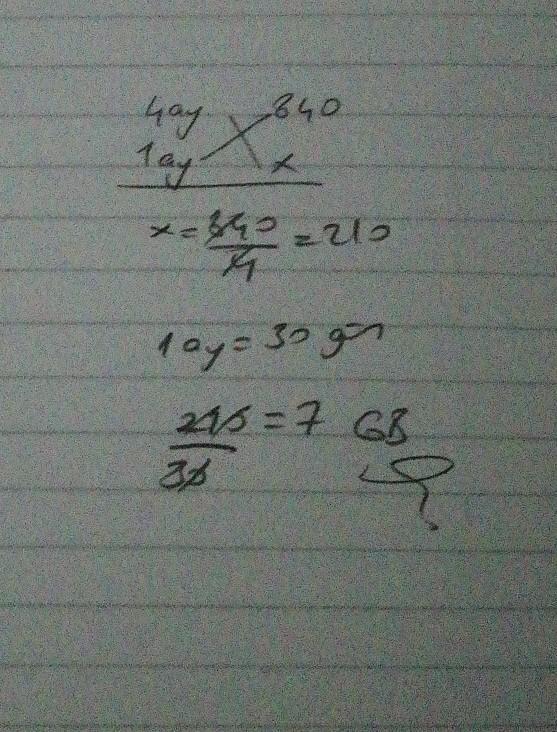 4ay 840
1ay x
x = 840/4 = 210
1 ay = 30 gün
210/30 = 7 GB